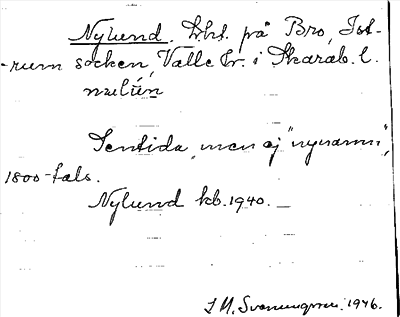 Nylund. Lht. på Bro, Ist-
-rum socken, Valle hr. i Skarab. l.
nylún
Sentida, men ej "nynamn",
1800-tals.
Nylund kb. 1940. —
J M. Svenungsson. 1946.